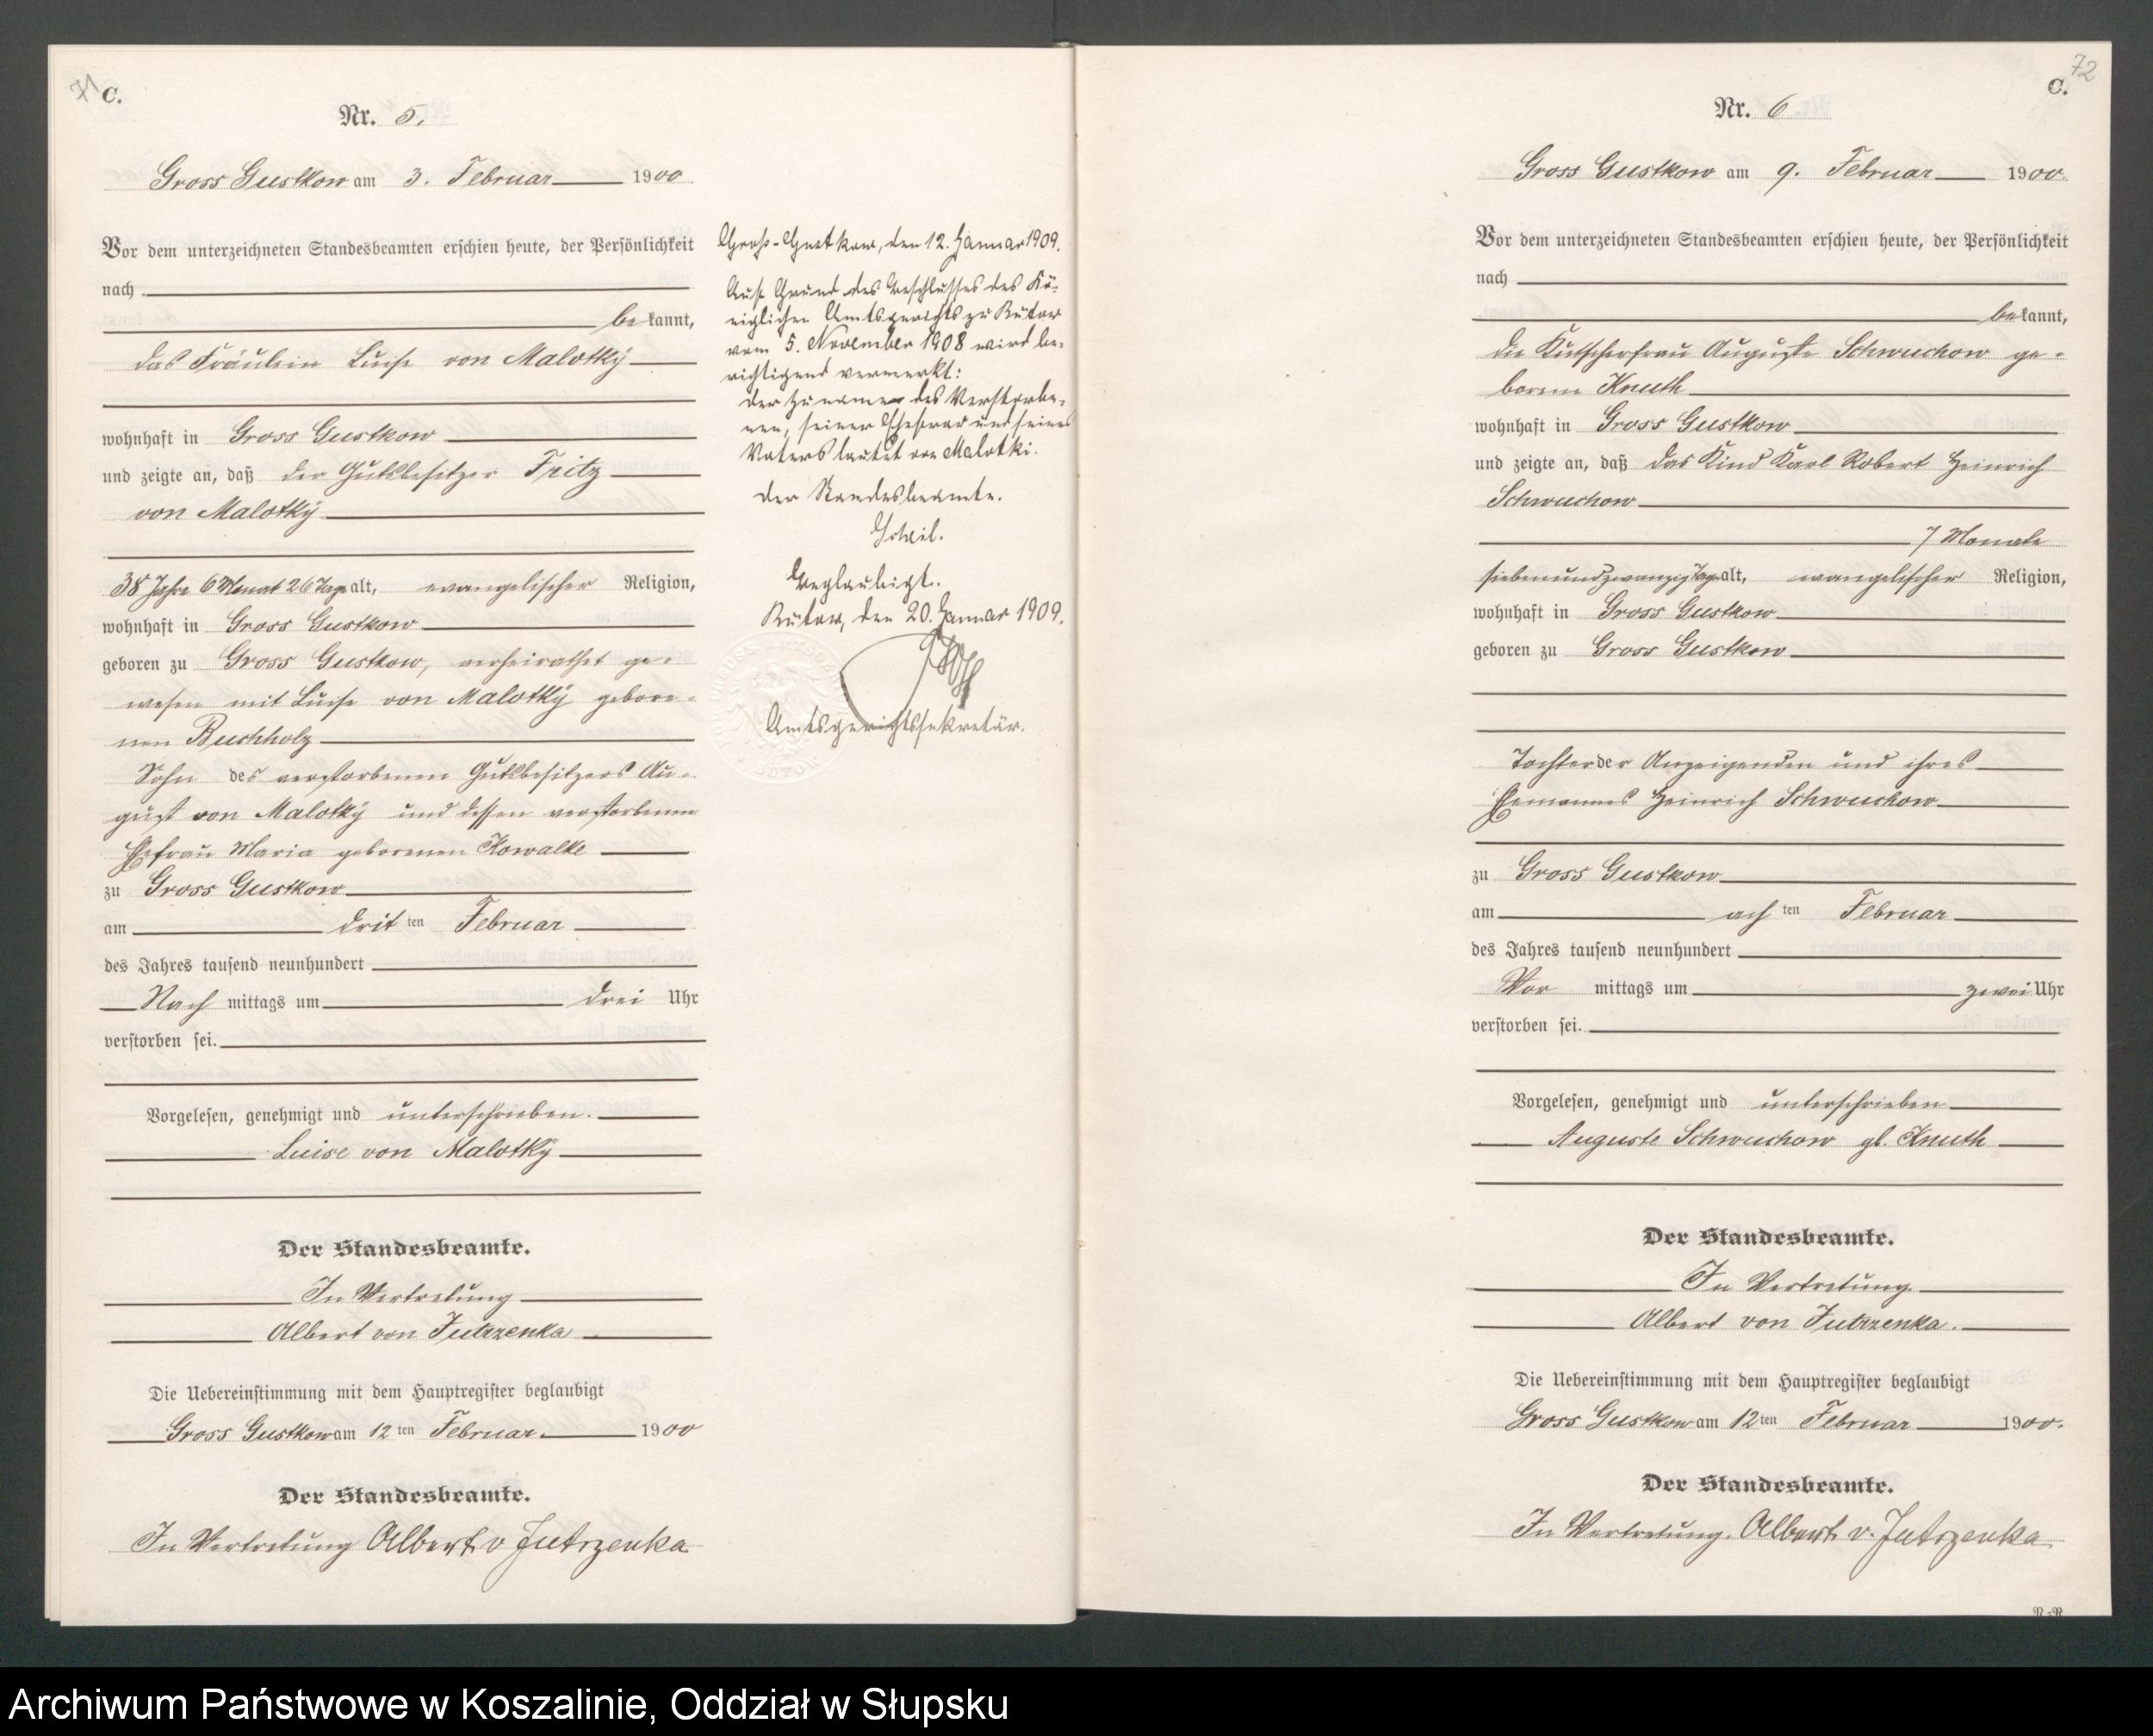 71 C.
Nr. 5.
Gross Gustkow am 3. Februar 1900
Vor dem unterzeichneten Standesbeamten erschien heute, der Persönlichkeit
nach
be kannt,
das Fräulein Luise von Malotky
wohnhaft in Gross Gustkow
und zeigte an, daß der Gutsbesitzer Fritz
von Malotky
38 Jahre 6 Monat 26 Tage alt, evangelischer Religion,
wohnhaft in Gross Gustkow
geboren zu Gross Gustkow, verheirathet ge-
wesen mit Luise von Malotky gebore-
nen Buchholz
Sohn des verstorbenen Gutsbesitzers Au-
gust von Malotky und dessen verstorbenen
Ehefrau Maria geborenen Kowalke
zu Gross Gustkow
am drit ten Februar
des Jahres tausend neunhundert
Nach mittags um drei Uhr
verstorben sei.
Vorgelesen, genehmigt und unterschrieben.
Luise von Malotky
Der Standesbeamte.
In Vertretung
Albert von Jutrzenka
Die Uebereinstimmung mit dem Hauptregister beglaubigt
Gross Gustkow am 12 ten Februar 1900
Der Standesbeamte.
In Vertretung Albert v Jutrzenka
Groß-Gustkow, den 12. Januar 1909.
Auf Grund des Beschlusses des Kö-
niglichen Amtsgerichts zu Bütow
vom 5. November 1908 wird be-
richtigend vermerkt:
der Zuname des Verstorbe-
nen, seiner Ehefrau und seines
Vaters lautet von Malotki.
Der Standesbeamte.
Beglaubigt.
Bütow, den 20. Januar 1909.
Amtsgerichtssekretär.
72
C.
Nr. 6
Gross Gustkow am 9. Februar 1900.
Vor dem unterzeichneten Standesbeamten erschien heute, der Persönlichkeit
nach
be kannt,
die Kutscherfrau Auguste Schwuchow ge-
borene Knuth
wohnhaft in Gross Gustkow
und zeigte an, daß das Kind Karl Robert Heinrich
Schwuchow
7 Monate
siebenundzwanzig Tage alt, evangelischer Religion,
wohnhaft in Gross Gustkow
geboren zu Gross Gustkow
Tochter der Anzeigenden und ihres
Ehemannes Heinrich Schwuchow
zu Gross Gustkow
am ach ten Februar
des Jahres tausend neunhundert
Vor mittags um zwei Uhr
verstorben sei.
Vorgelesen, genehmigt und unterschrieben
Auguste Schwuchow gb. Knuth
Der Standesbeamte.
In Vertretung.
Albert von Jutrzenka.
Die Uebereinstimmung mit dem Hauptregister beglaubigt
Gross Gustkow am 12 ten Februar 1900.
Der Standesbeamte.
In Vertretung. Albert v. Jutrzenka.
Archiwum Państwowe w Koszalinie, Oddział w Słupsku